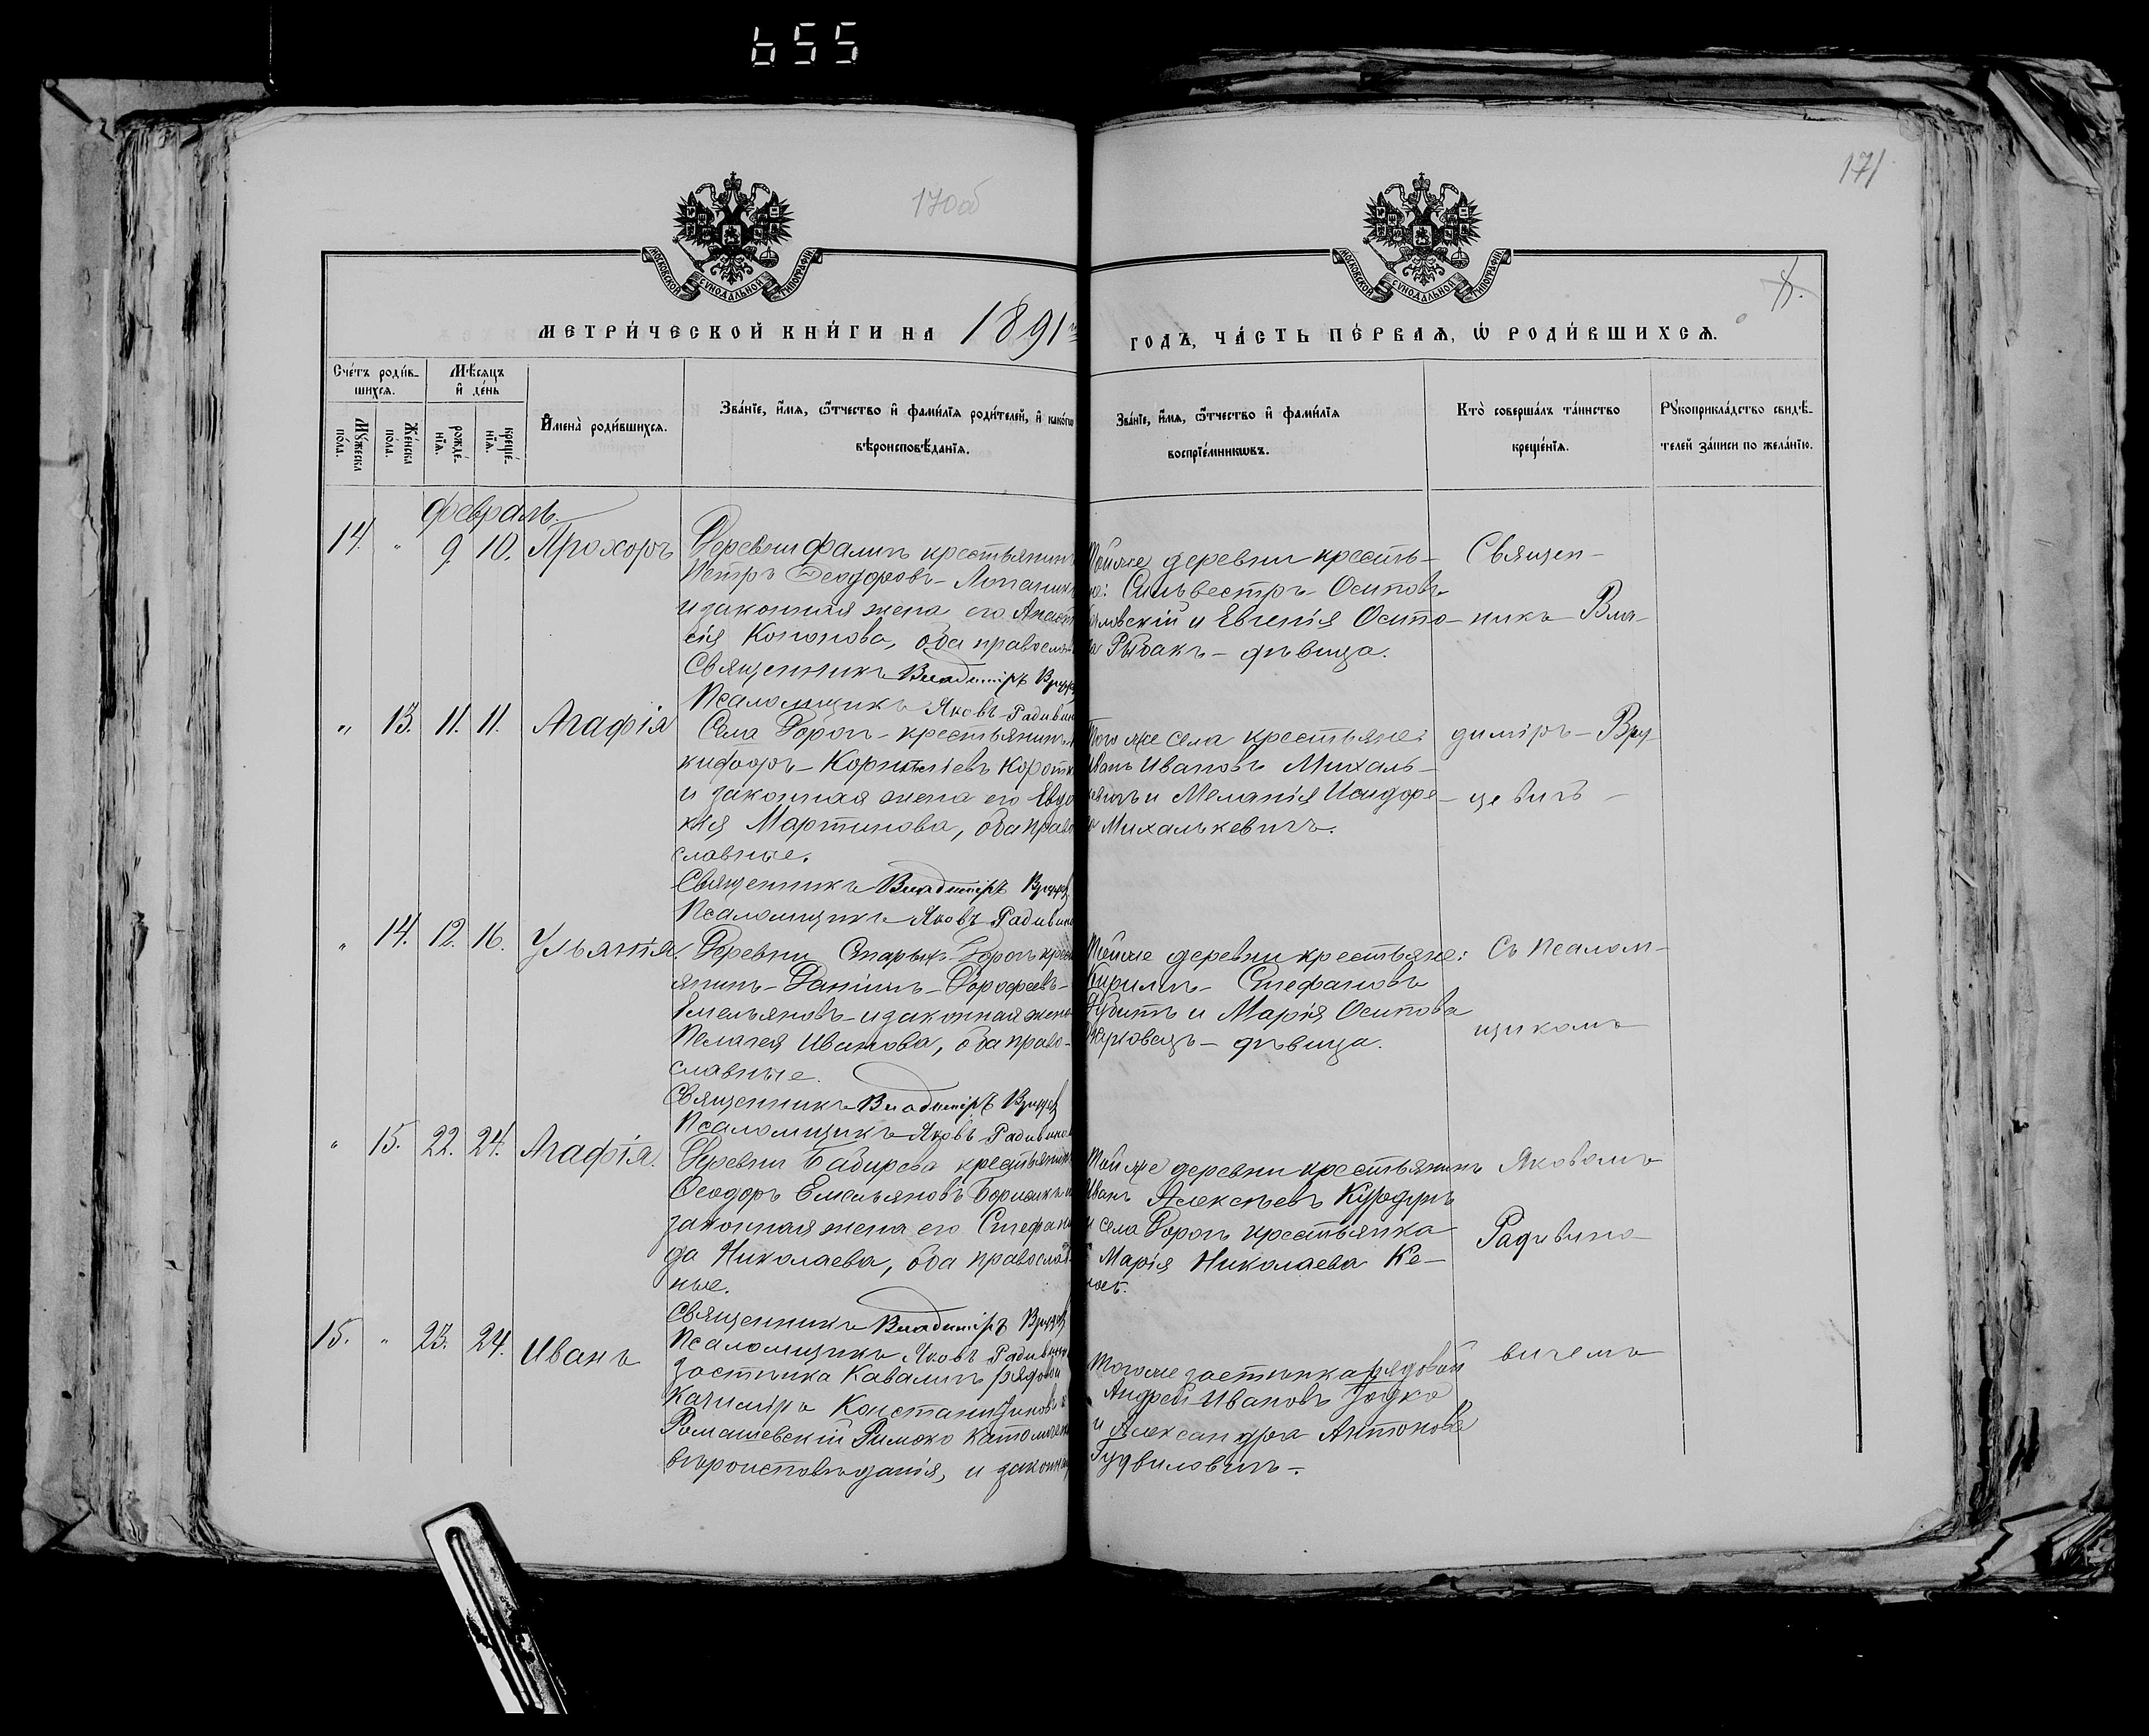 655
170об
171
МОСКОВСКОЙ СѴНОДАЛЬНОЙ ТИПОГРАФІИ
МОСКОВСКОЙ СѴНОДАЛЬНОЙ ТИПОГРАФІИ
МЕТРИ́ЧЕСКОЙ КНИ́ГИ НА 1891
ГОДЪ, ЧА́СТЬ ПЕ́РВАѦ, Ѡ҆ РОДИ́ВШИХСѦ.
Сче́тъ роди́в-
шихсѧ.
Мѣ́сѧцъ
и҆ де́нь
Мꙋ́жеска
по́ла.
Же́нска
по́ла.
рожде́-
нїѧ.
креще́-
нїѧ.
И҆мена̀ роди́вшихсѧ.
Зва́нїе, и҆́мѧ, ѻ҆́тчество и҆ фами́лїѧ роди́телей, и҆ како́гѡ
вѣроисповѣ́данїѧ.
Зва́нїе, и҆́мѧ, ѻ҆́тчество и҆ фами́лїѧ
воспрїе́мникѡвъ.
Кто̀ соверша́лъ та́инство
креще́нїѧ.
Рꙋкоприкла́дство свидѣ́-
телей за́писи по жела́нїю.
Февраль.
14. " 9. 10. Прохоръ
Деревни Фаличь крестьянинъ
Петръ Ѳеодоровъ
и законная жена его Анаст
сія Кононова, оба правосла
Священникъ Владиміръ
Псаломщикъ Яковъ Радивин
Тойже деревни кресть-
не: Сильвестръ Осиповъ
ловскій и Евгенія Осипо-
а Рыбакъ - дѣвица.
Священ-
никъ Вла-
" 13. 11. 11. Агафія
Села Дорогъ - крестьянинъ
кифоръ Корниліевъ
и законная жена его Евдо
кія Мартинова, оба право
славные.
Священникъ Владиміръ
Псаломщикъ Яковъ Радивин
Того же села крестьяне:
Иванъ Ивановъ Михаль-
кевичъ и Меланія Исидоро-
Михалькевичъ.
диміръ - Вру-
цевичъ -
" 14. 12. 16. Ульянія.
Деревни Старыхъ Дорогъ крест
янинъ - Даніилъ - Дорофеевъ -
Емельяновъ - и законная жена
Пелагея Иванова, оба право-
славные.
Священникъ Владиміръ
Псаломщикъ Яковъ Радивин
Тойже деревни крестьяне:
Кириллъ - Стефановъ
и Марія Осипова
- дѣвица.
Съ псалом-
щикомъ
" 15. 22. 24. Агафія.
Деревни крестьянинъ
Ѳеодоръ Емельяновъ
законная жена его Стефани
да Николаева, оба православ-
ные.
Священникъ Владиміръ
Псаломщикъ Яковъ Радивин
Тойже деревни крестьянинъ
Иванъ Алексѣевъ
и села Дорогъ крестьянка
Марія Николаева
Яковомъ
Радивино-
15. " 23. 24. Иванъ
застѣнка Кавалич рядовой
Казиміръ Константиновъ
Ромашевскій Римско Католич
вѣроисповѣданія, и законная
Тогоже застѣнка рядовой
Андрей Ивановъ
и Александра Антонова
Гудвиловичъ -.
вичемъ